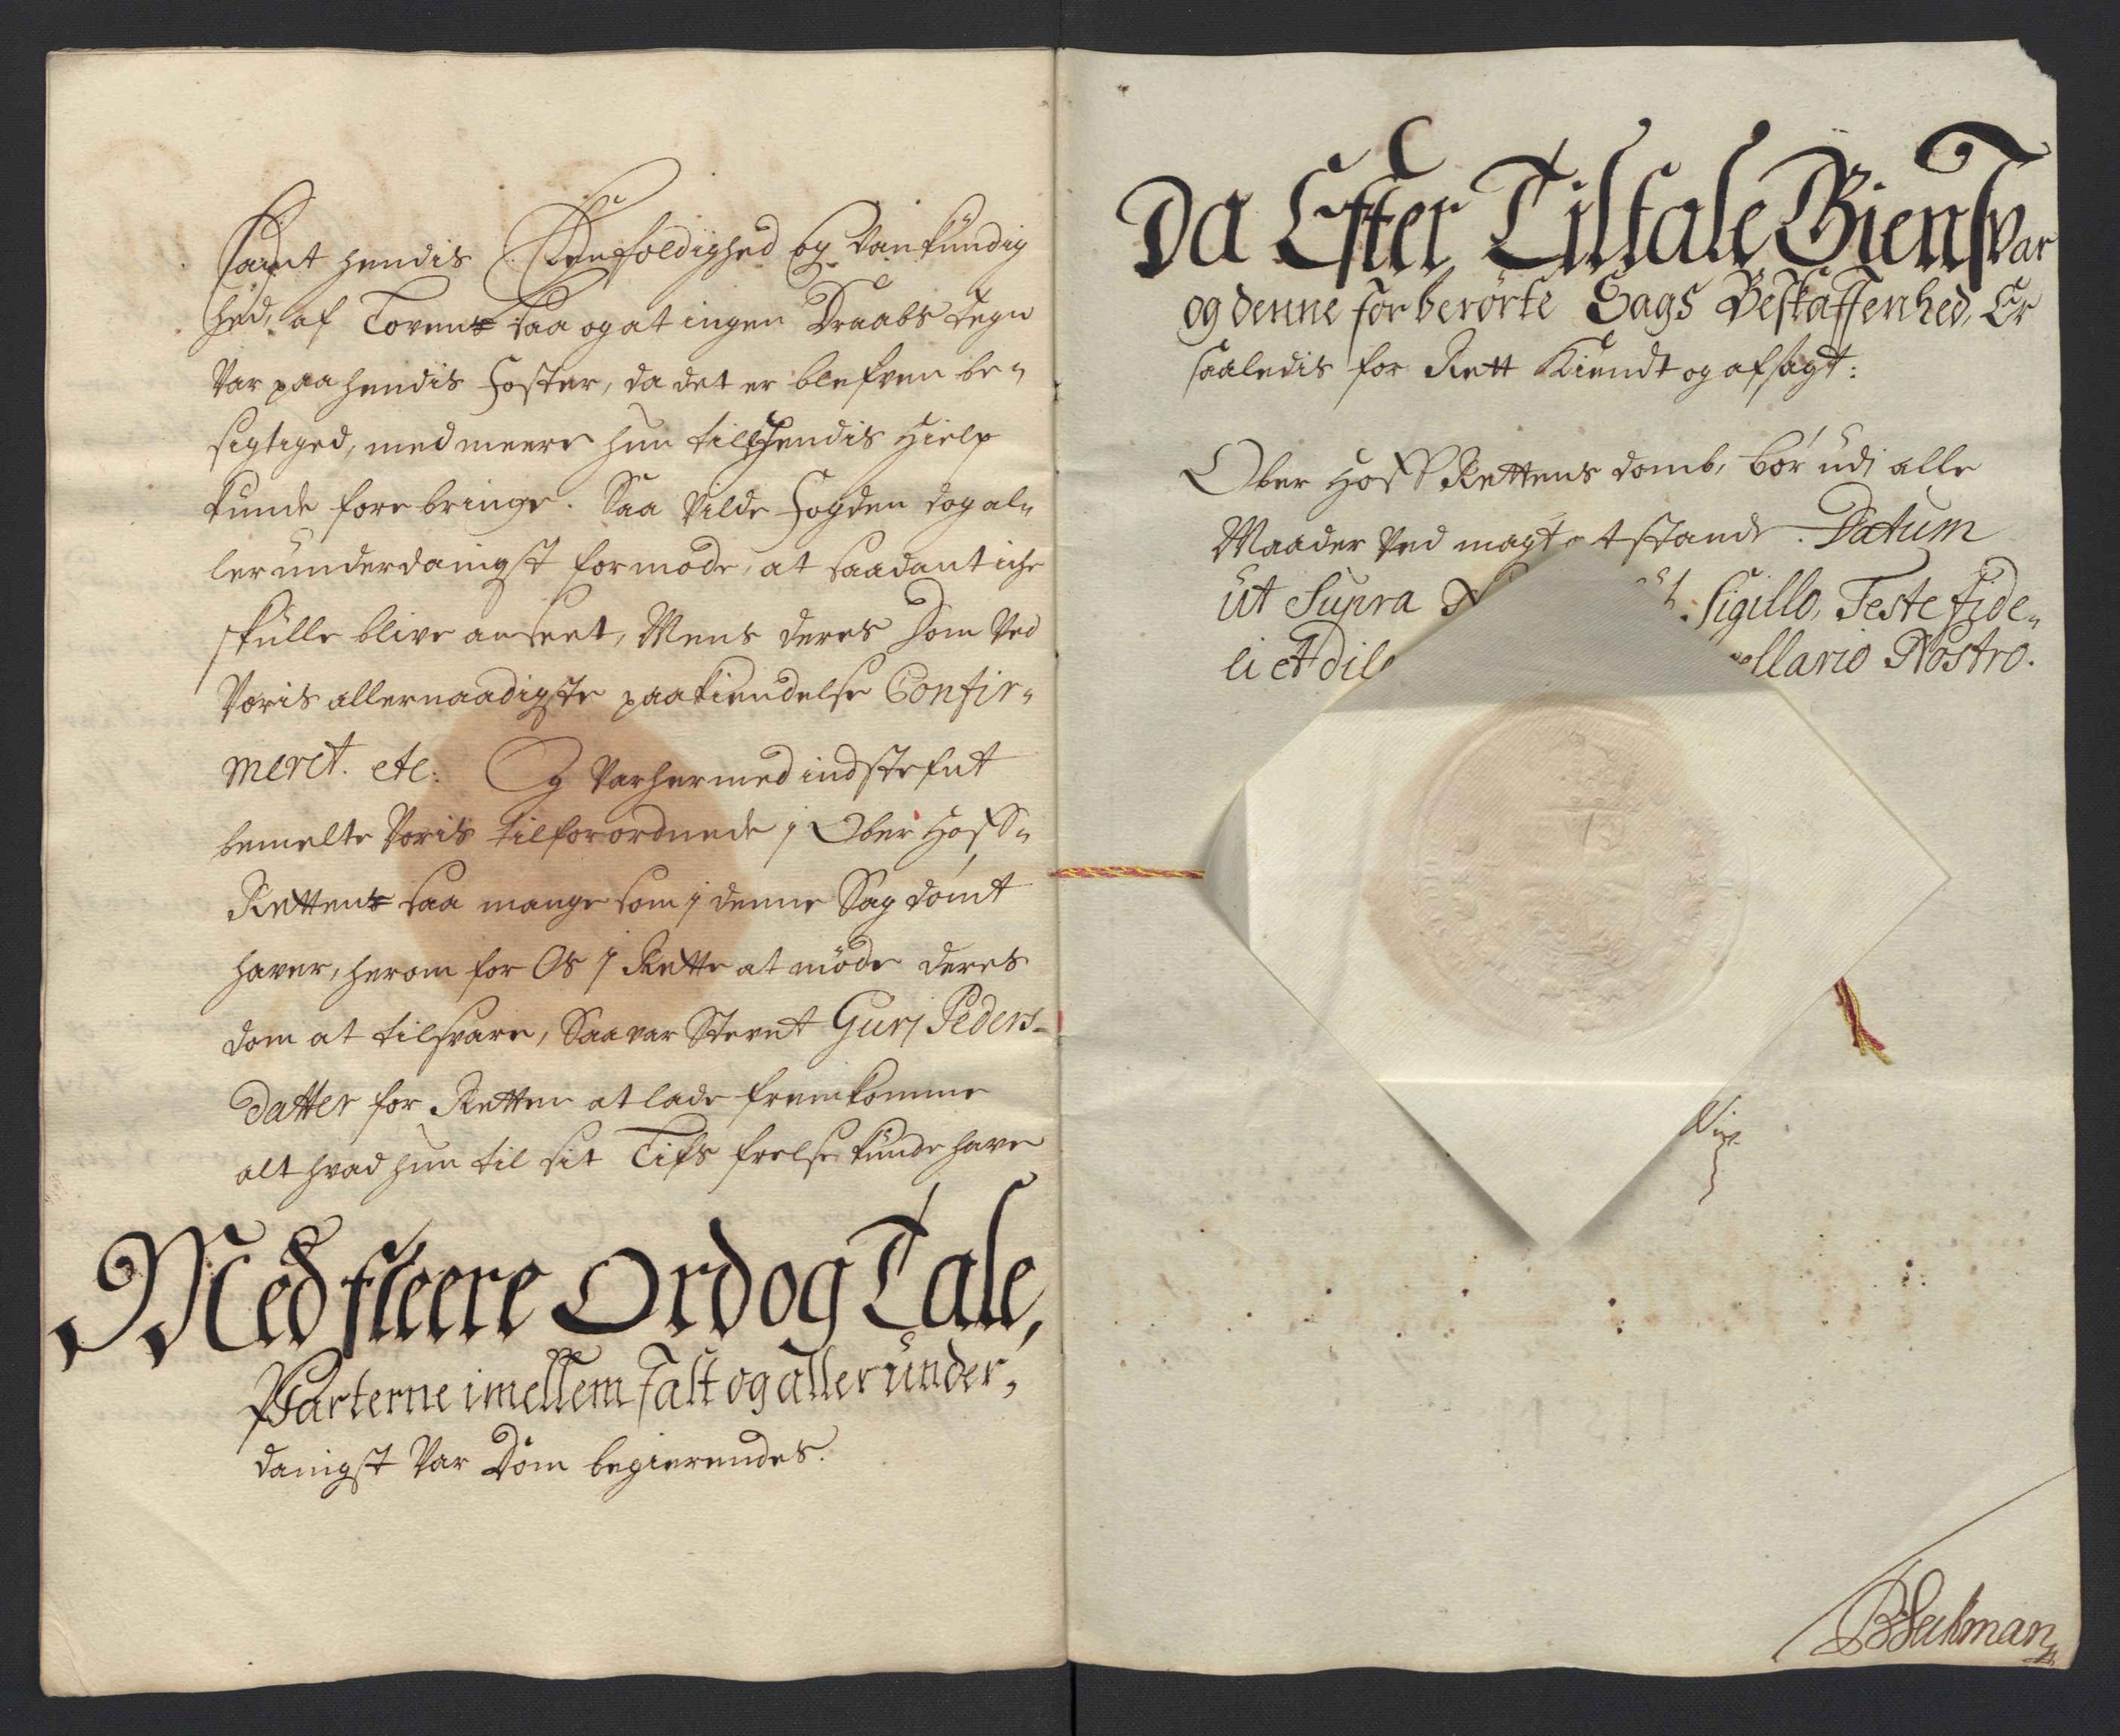 Samt hendis Eenfoldighed og Vankündig
hed, af Loven, saa og at ingen Draabs Tegn
Var paa hendis Foster, da det er blefven be-
sigtiged, med meere hun till hendis Hielp
kunde forebringe. Saa Vilde Fogden dog al-
lerunderdanigst formode, at saadant iche
skulle blive anseet, Mens deres Dom Ved
Voris allernaadigste paakiendelse Confir-
meret. etc: Og Var hermed indstefnt
bemelte Voris tilforordnede j Ober Hoff-
Retten saa mange som j denne Sag dømt
haver, herom for Os j Rette at møde deres
dom at tilsvare, Saa var Stevnt Gurj Peders-
datter for Retten at lade fremkomme
alt hvad hun til sit Lifs frelse kunde have
Med fleere Ord og Tale,
Parterne imellem falt og alleründer-
danigst Var Dom begierendes.
Da Efter Tiltale Giensvar
og denne forberørte Sags Beskaffenhed, Er
saaledis for Rett Kiendt og afsagt:
Ober Hoff Rettens domb, bør udj alle
Maader Ved magt at stande. Datum
ut Supra Sigillo, Teste fide-
li et dile llario Nostro.